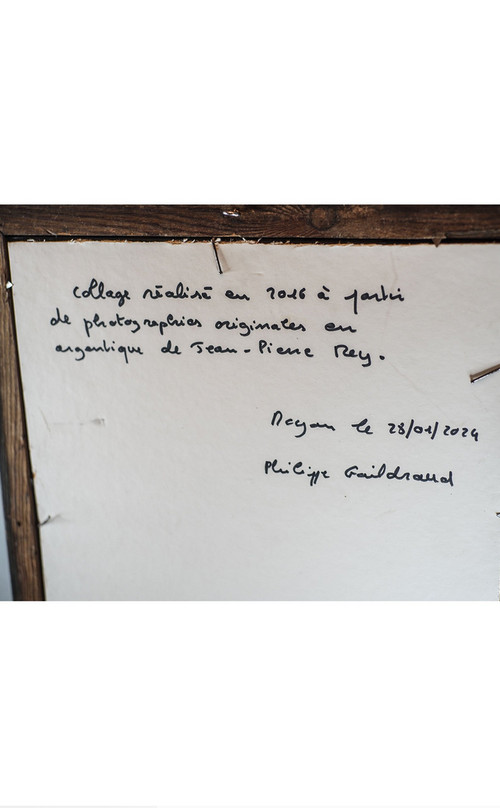 collage réalisé en 2016 à partir
de photographies originales en
argentique de Jean-Pierre Rey.
Royan le 28/01/2024
Philippe Gaildraud